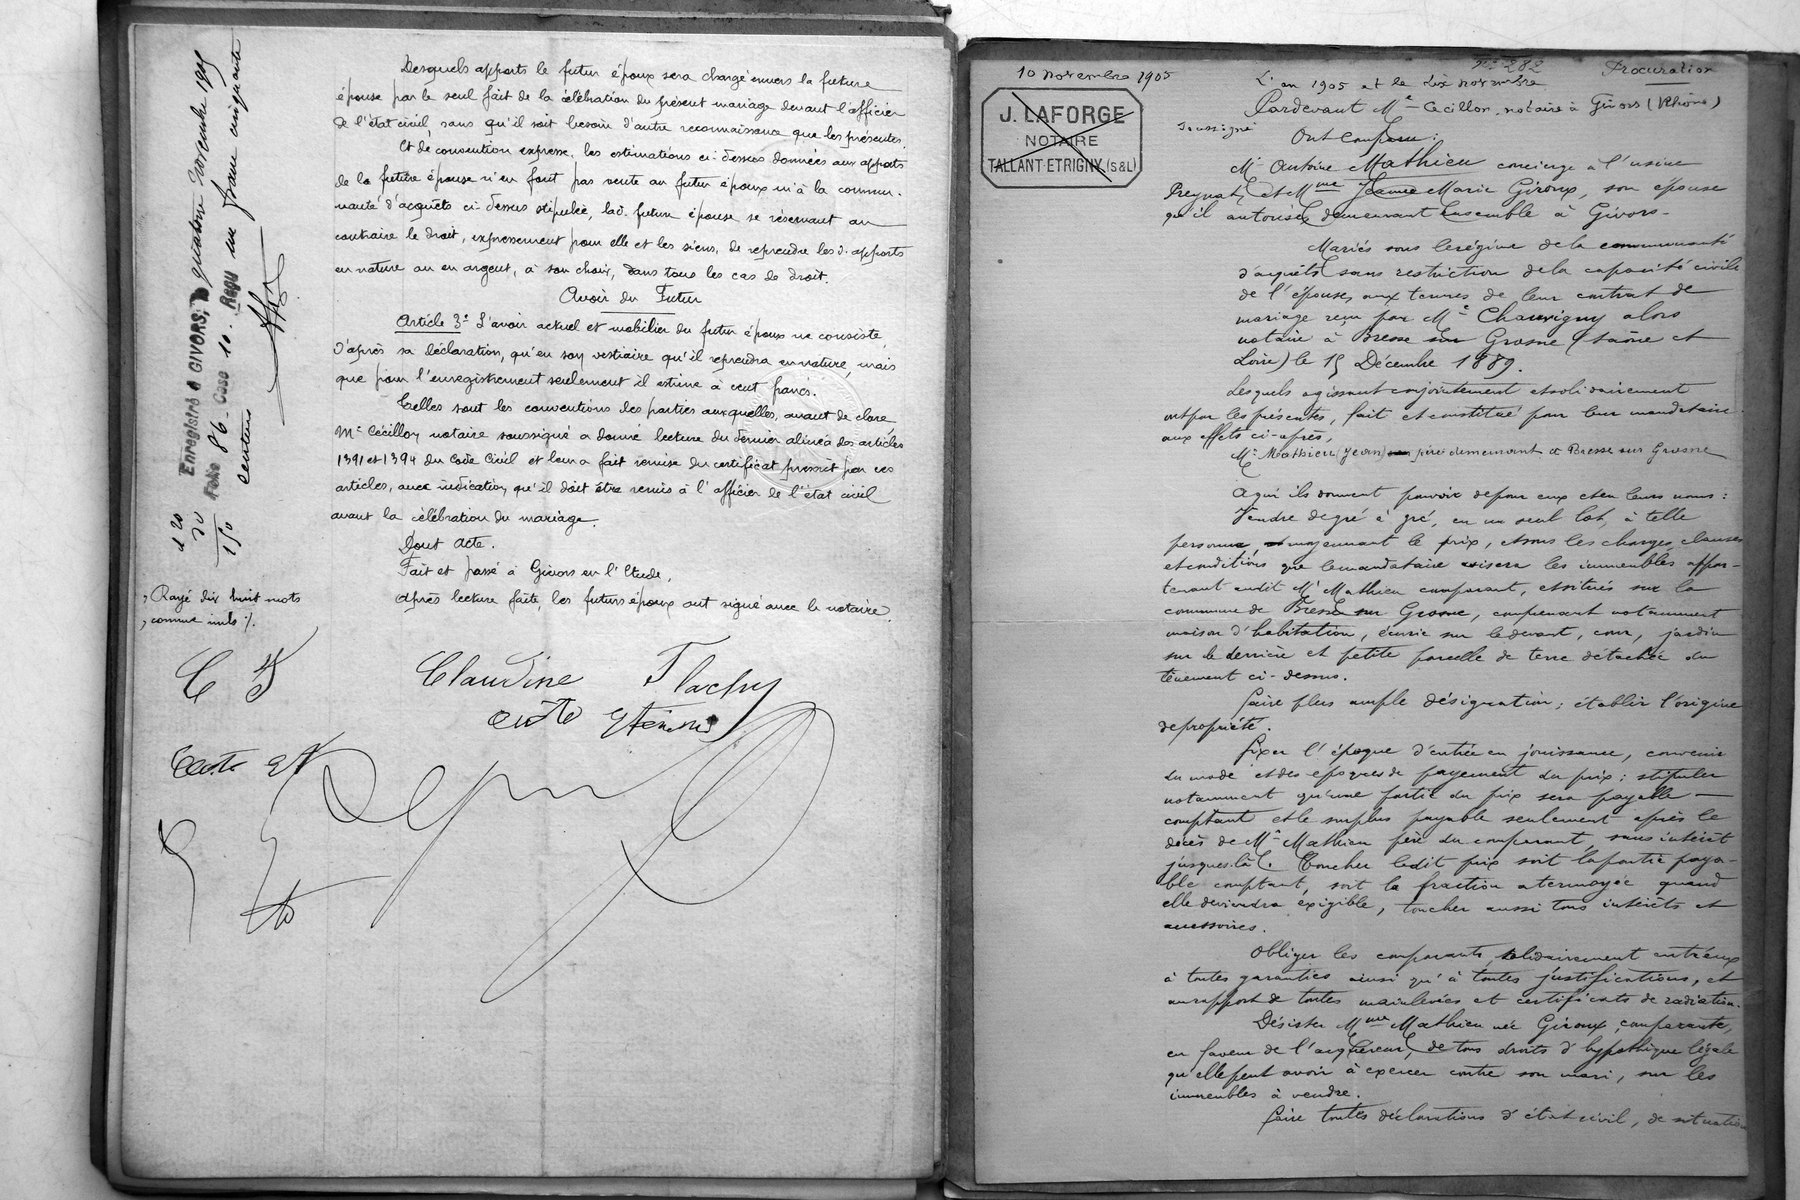 Desquels apports le futur époux sera chargé envers la future
épouse par le seul fait de la célébration du présent mariage devant l'officier
de l'état civil, sans qu'il soit besoin d'autre reconnaissance que les présentes.
Et de convention expresse, les estimations ci-dessus données aux apports
de la future épouse n'en font pas vente au futur époux ni à la commu-
nauté d'acquêts ci-dessus stipulée, lad. future épouse se réservant au
contraire le droit, expressément pour elle et les siens, de reprendre les d. apports
en nature ou en argent, à son choix, dans tous les cas de droit.
Avoir du Futur
Article 3e L'avoir actuel et mobilier du futur époux ne consiste,
d'après sa déclaration, qu'en son vestiaire qu'il reprendra en nature, mais
que pour l'enregistrement seulement il estime à cent francs.
Telles sont les conventions des parties auxquelles, avant de clore,
Me Cécillon notaire soussigné a donné lecture du dernier alinéa des articles
1391 et 1394 du Code Civil et leur a fait remise du certificat prescrit par ces
articles, avec indication qu'il doit être remis à l'officier de l'état civil
avant la célébration du mariage.
Dont acte.
Fait et passé à Givors en l'Etude,
Après lecture faite, les futurs époux ont signé avec le notaire.
Enregistré à GIVORS, le quatorze novembre 1905
Folio 86 Case 10. Reçu un franc cinquante
centimes
1 20
30
1 50
Rayé dix huit mots
comme nuls ./.
C F
Claudine Flachy
10 novembre 1905
J. LAFORGE
NOTAIRE
TALLANT-ETRIGNY (S&L)
No 282
Procuration
L'an 1905 et le dix novembre
Pardevant Me Cécillon, notaire à Givors (Rhône)
soussigné
Ont comparu:
Mr Antoine Mathieu concierge à l'usine
Preynat, et Mme Jeanne Marie Giroux, son épouse
qu'il autorise, demeurant ensemble à Givors-
Mariés sous le régime de la communauté
d'acquêts sans restriction de la capacité civile
de l'épouse, aux termes de leur contrat de
mariage reçu par Me Chauvigny alors
notaire à Bresse sur Grosne (Saône et
Loire) le 15 Décembre 1889.
Lesquels agissant conjointement et solidairement
ont par les présentes, fait et constitué pour leur mandataire
aux effets ci-après,
Mr Mathieu (Jean) père demeurant à Bresse sur Grosne
A qui ils donnent pouvoir de pour eux et en leurs noms:
Vendre de gré à gré, en un seul lot, à telle
personne, moyennant le prix, et sous les charges, clauses
et conditions que le mandataire avisera les immeubles appar-
tenant audit Mr Mathieu comparant, et situés sur la
commune de Bresse sur Grosne, comprenant notamment
maison d'habitation, écurie sur le devant, cour, jardin
sur le derrière et petite parcelle de terre détachée du
tènement ci-dessus.
Faire plus ample désignation; établir l'origine
de propriété.
Fixer l'époque d'entrée en jouissance, convenir
du mode et des époques de payement du prix; stipuler
notamment qu'une partie du prix sera payable
comptant et le surplus payable seulement après le
décès de Mr Mathieu père du comparant, sans intérêt
jusques-là. Toucher ledit prix soit la partie paya-
ble comptant, soit la fraction atermoyée quand
elle deviendra exigible, toucher aussi tous intérêts et
accessoires.
Obliger les comparants, solidairement entr'eux
à toutes garanties ainsi qu'à toutes justifications, et
au rapport de toutes mainlevées et certificats de radiation.
Désister Mme Mathieu née Giroux, comparante,
en faveur de l'acquéreur, de tous droits d'hypothèque légale
qu'elle peut avoir à exercer contre son mari, sur les
immeubles à vendre.
Faire toutes déclarations d'état civil, de situation